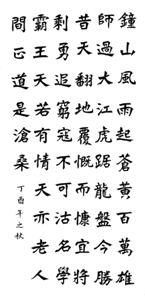 鐘山風雨起蒼黃百萬雄
師過大江虎踞龍盤今勝
昔天翻地覆慨而慷宜將
剩勇追窮寇不可沽名學
霸王天若有情天亦老人
間正道是滄桑
丁酉年之秋